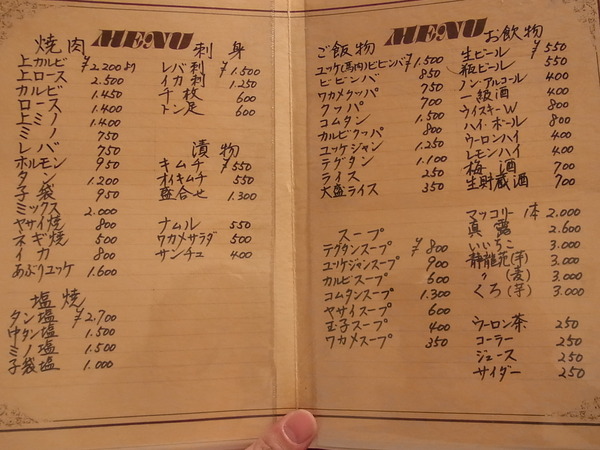 MENU
焼肉
上カルビ ¥2.200より
上ロース 2.500
カルビ 1.450
ロース 1.400
上ミノ 1.400
ミノ 750
レバー 750
ホルモン 950
タン 1.200
子袋 950
ミックス 2.000
ヤサイ焼 800
ネギ焼 500
イカ 800
あぶりユッケ 1.600
塩焼
タン塩 ¥2,700
中タン塩 1.500
ミノ塩 1.500
子袋塩 1.000
刺身
レバ刺 ¥1.500
イカ刺 1.250
千枚 600
トン足 600
漬物
キムチ ¥550
オイキムチ 550
盛合せ 1.300
ナムル 550
ワカメサラダ 500
サンチュ 400
MENU
ご飯物
ユッケ(馬肉)ビビンバ ¥1.500
ビビンバ 850
ワカメクッパ 750
クッパ 700
コムタン 1.500
カルビクッパ 800
ユッケジャン 1.250
テグタン 1.100
ライス 250
大盛ライス 350
スープ
テグタンスープ ¥800
ユッケジャンスープ 900
カルビスープ 600
コムタンスープ 1.300
ヤサイスープ 600
玉子スープ 400
ワカメスープ 350
お飲物
生ビール ¥550
瓶ビール 550
ノンアルコール 400
一級酒 400
ウイスキーW 800
ハイボール 800
ウーロンハイ 400
レモンハイ 400
梅酒 700
生貯蔵酒 700
マッコリー 1本 2.000
真露 2.600
いいちこ 3.000
(芋) 3.000
〃 (麦) 3.000
くろ(芋) 3.000
ウーロン茶 250
コーラー 250
ジュース 250
サイダー 250